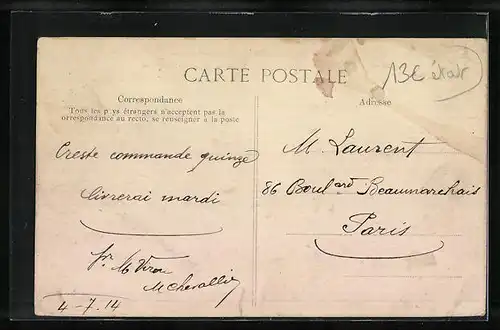 CARTE POSTALE
13€ état
Correspondance
Tous les pays étrangers n'acceptent pas la
orrespondance au recto, se renseigner à la poste
Adresse
Creste commande quinze
livrerai mardi
pr M Viron
M Chevallier
4-7.14
M. Laurent
86 Boulard Beaumarchais
Paris